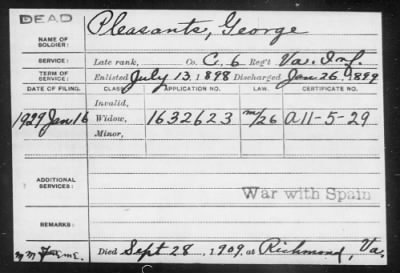 DEAD
NAME OF SOLDIER: Pleasants, George
SERVICE: Late rank, Co. C, 6 Reg't Va. Inf.
TERM OF SERVICE: Enlisted July 13, 1898 Discharged Jan 26, 1899
DATE OF FILING. CLASS. APPLICATION NO. LAW. CERTIFICATE NO.
Invalid,
1929 Jan 16 Widow, 1632623 m/26 A 11-5-29
Minor,
ADDITIONAL SERVICES: War with Spain
REMARKS:
Died Sept 28, 1909, at Richmond, Va.